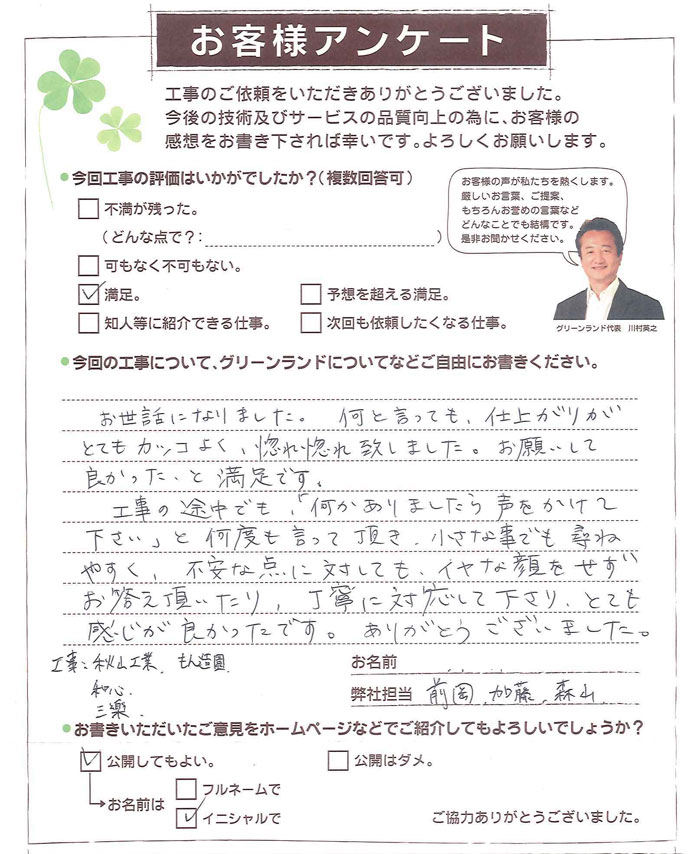 お客様アンケート
工事のご依頼をいただきありがとうございました。
今後の技術及びサービスの品質向上の為に、お客様の
感想をお書き下されば幸いです。よろしくお願いします。
●今回工事の評価はいかがでしたか?(複数回答可)
お客様の声が私たちを熱くします。
厳しいお言葉、ご提案、
もちろんお誉めの言葉など
どんなことでも結構です。
是非お聞かせください。
グリーンランド代表 川村英之
□不満が残った。
(どんな点で?: )
□可もなく不可もない。
☑満足。 □予想を超える満足。
□知人等に紹介できる仕事。 □次回も依頼したくなる仕事。
●今回の工事について、グリーンランドについてなどご自由にお書きください。
お世話になりました。 何と言っても、仕上がりが
とてもカッコよく、惚れ惚れ致しました。お願いして
良かった、と満足です。
工事の途中でも、「何かありましたら声をかけて
下さい」と何度も言って頂き、小さな事でも尋ね
やすく、不安な点に対しても、イヤな顔をせず
お答え頂いたり、丁寧に対応して下さり、とても
感じが良かったです。ありがとうございました。
工事:秋山工業、もん造園
和心、
三楽、
お名前
弊社担当 前岡、加藤、森山
●お書きいただいたご意見をホームページなどでご紹介してもよろしいでしょうか?
☑公開してもよい。 □公開はダメ。
→お名前は □フルネームで
☑イニシャルで
ご協力ありがとうございました。